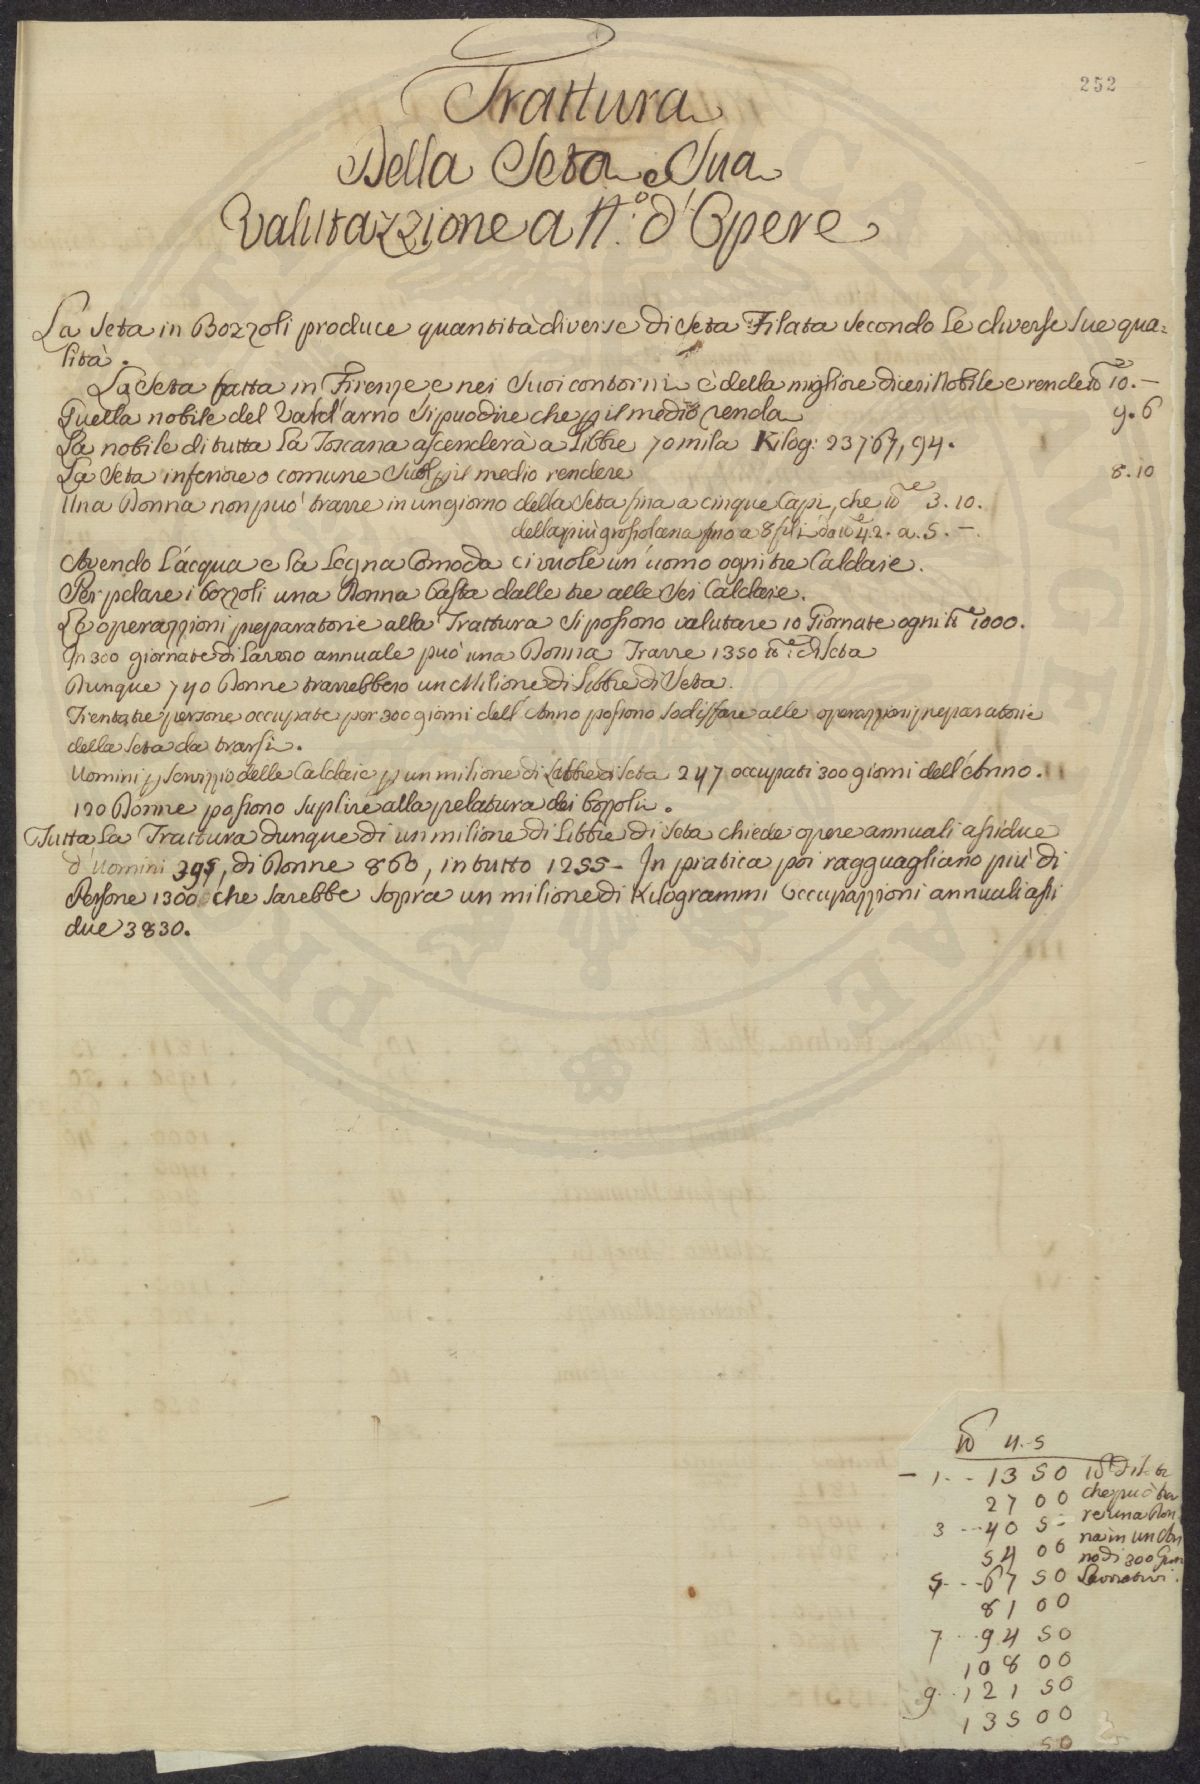 252
Trattura
Della Seta e Sua
Valutazzione a N.º d'Opere
La Seta in Bozzoli produce quantità diverse di Seta Filata secondo le diverse sue qua=
lità.
La Seta fatta in Firenze, e nei suoi contorni è della migliore dicesi Nobile e rende 10.—
Quella nobile del Vald'arno si può dire che p il medio renda 9.6
La nobile di tutta la Toscana ascenderà a Libbre 70 mila Kilog: 23767,94.
La Seta inferiore o comune suol p il medio rendere 8.10
Una Donna non può trarre in un giorno della Seta fina a cinque Capi, che 3.10.
della più grossolana fino a 8 fili da 4.2. a. 5.—
Avendo l'acqua e la Legna Comoda ci vuole un'uomo ogni tre Caldaie.
Per pelare i bozzoli una Donna basta dalle tre alle sei Caldaie.
Le operazzioni preparatorie alla Trattura si possono valutare 10 Giornate ogni 1000.
In 300 giornate di Lavoro annuale può una Donna Trarre 1350 di Seta
Dunque 740 Donne trarrebbero un Milione di Libbre di Seta.
Trentatre persone occupate per 300 giorni dell'Anno possono sodisfare alle operazzioni preparatorie
della Seta da trarsi.
Uomini p servizzio delle Caldaie p un milione di Libbre di Seta 247 occupati 300 giorni dell'Anno.
120 Donne possono suplire alla pelatura dei bozzoli.
Tutta la Trattura dunque di un milione di Libbre di Seta chiede opere annuali assidue
d'Uomini 395, di Donne 860, in tutto 1255 - In pratica poi ragguagliano più di
Persone 1300 che sarebbe sopra un milione di Kilogrammi Occupazzioni annuali assi
due 3830.
4.5
— 1.. - 1350 di Seta
2700 che può tra
3 --- 405- re una Don
5400 na in un An
5 --- 6750 no di 300 Gior
Lavorativi.
8100
7 -- 9450
10800
9.. 12150
13500
50